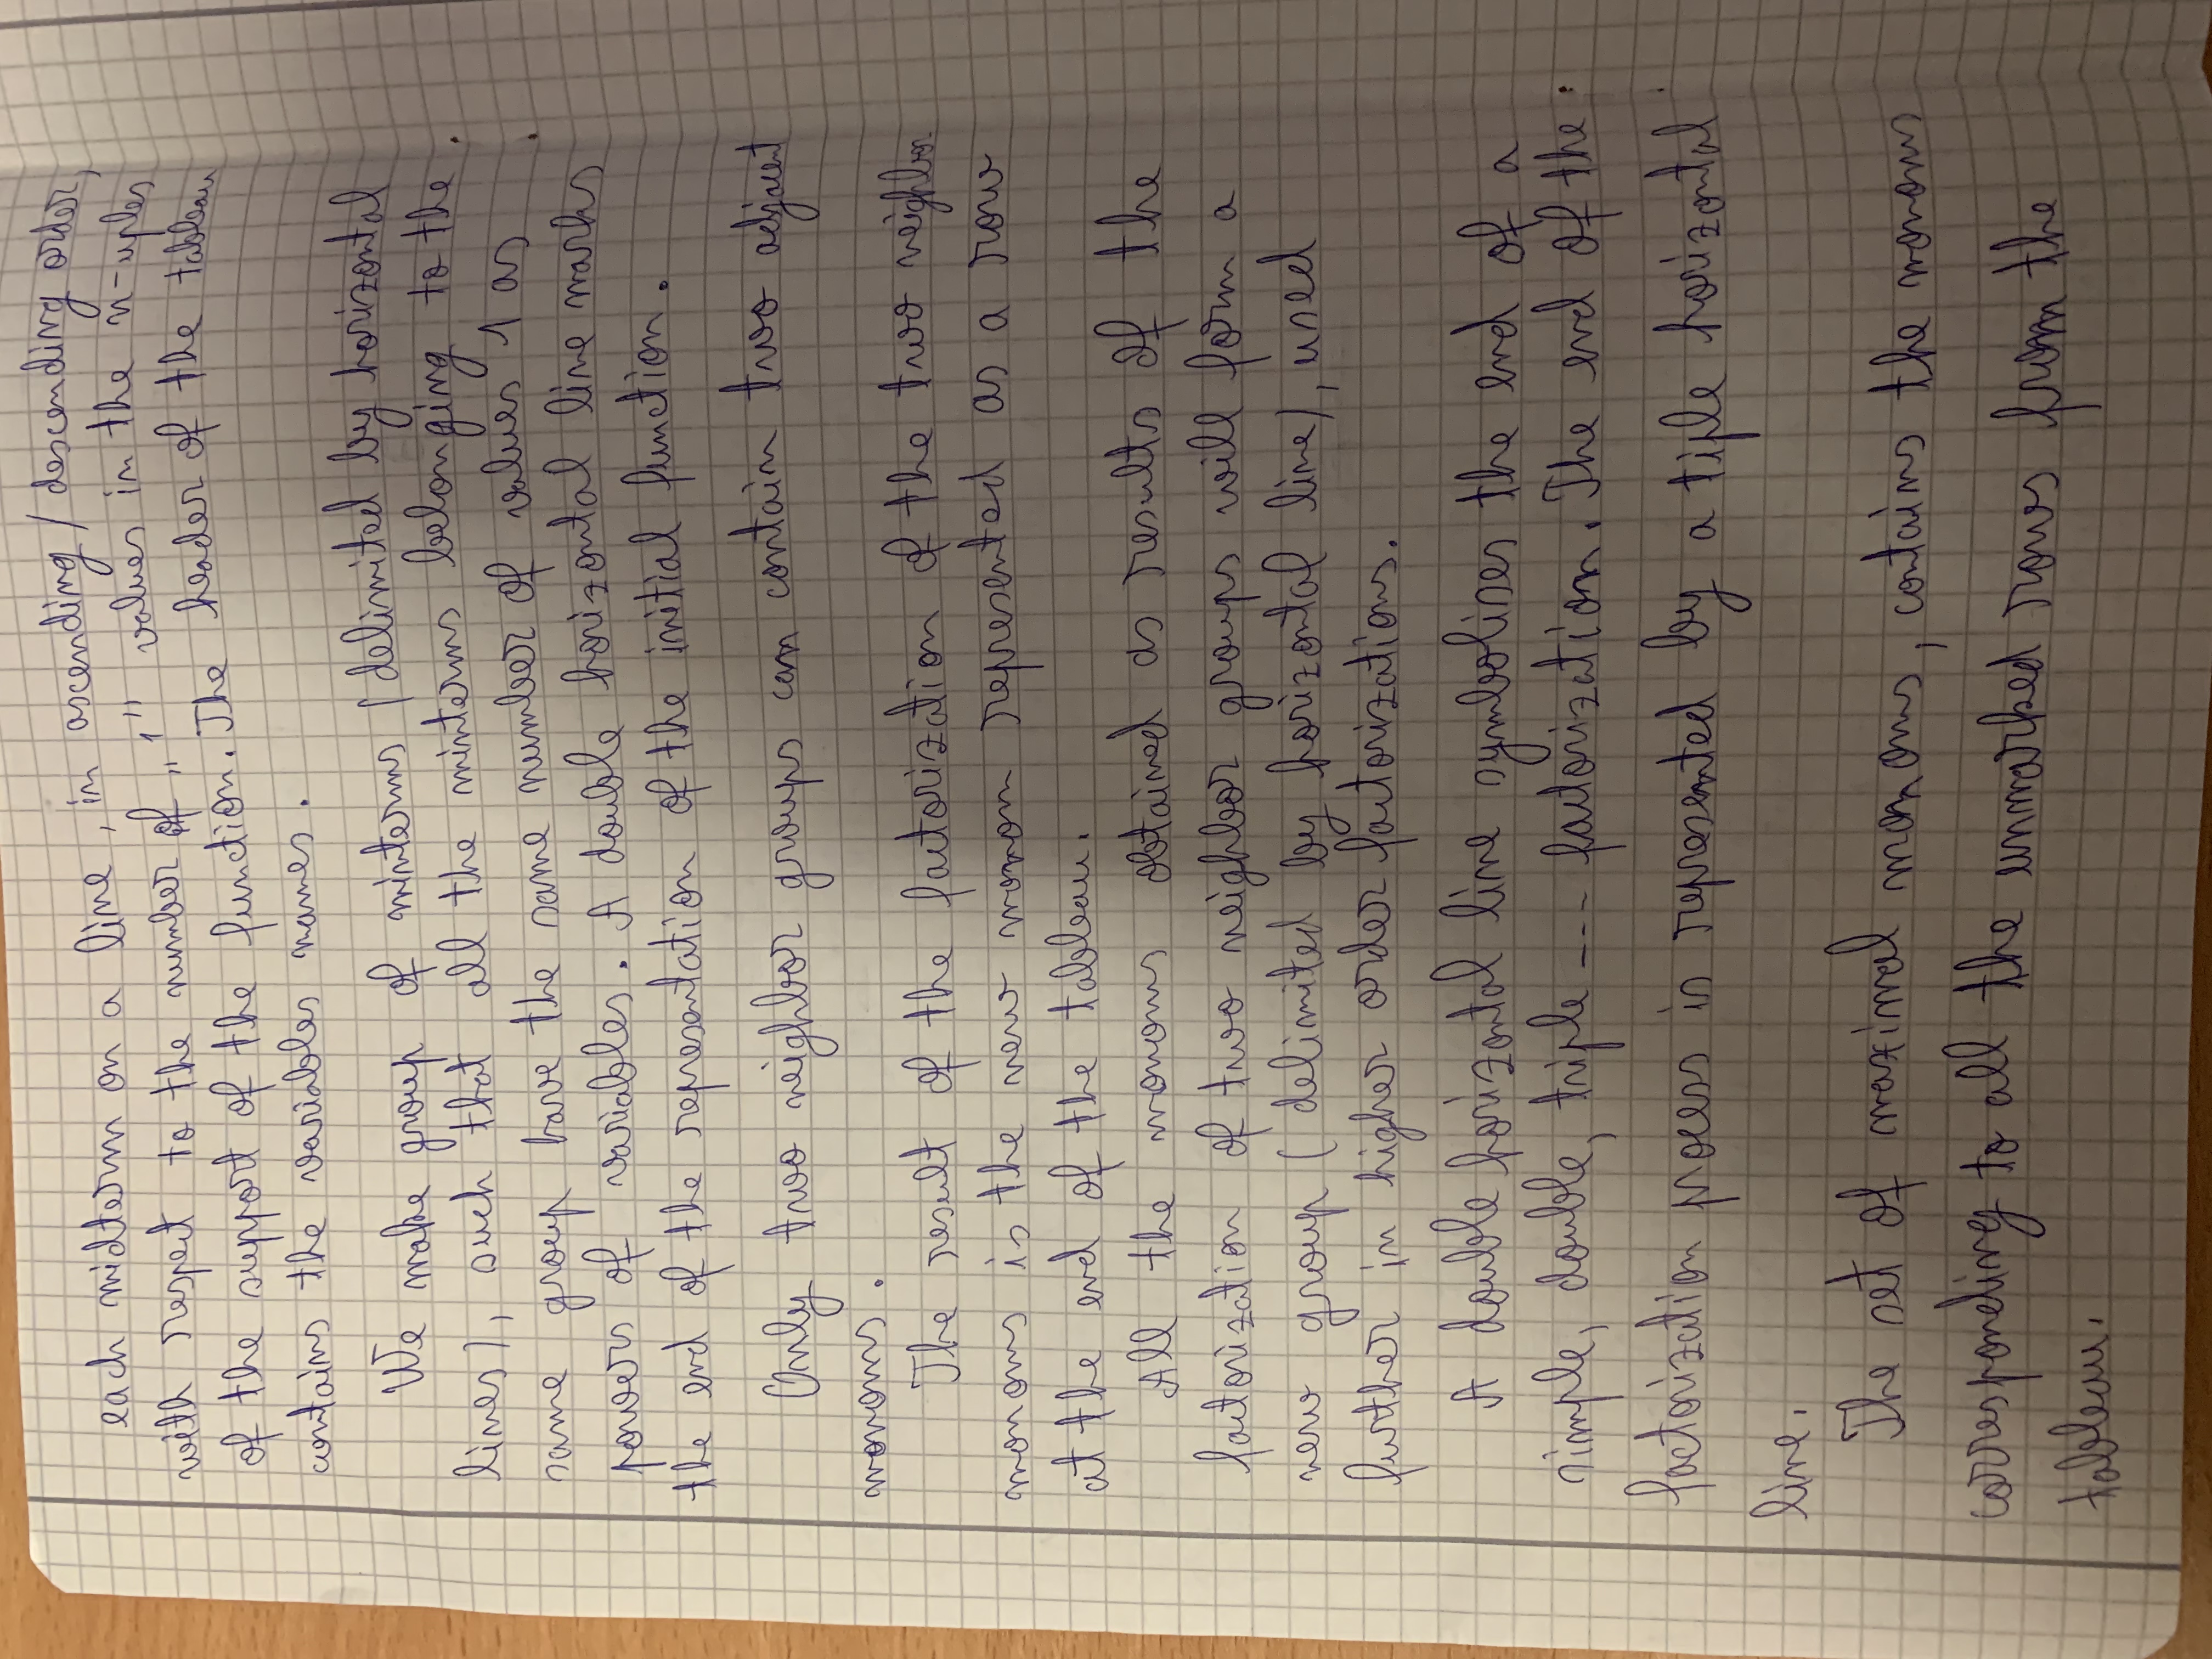 each midterm on a line, in ascending / descending order,
with respect to the number of „1” values in the n-uples
of the support of the function. The header of the tableau
contains the variables names.
We make group of minterms (delimited by horizontal
lines), such that all the minterms belonging to the
same group have the same number of values 1 as
powers of variables. A double horizontal line marks
the end of the representation of the initial function.
Only two neighbor groups can contain two adjacent
monoms.
The result of the factorization of the two neighbor
monoms is the new monom represented as a row
at the end of the tableau.
All the monoms obtained as results of the
factorization of two neighbor groups will form a
new group (delimited by horizontal line), used
further in higher order factorizations.
A double horizontal line symbolises the end of a
simple, double, triple --- factorization. The end of the
factorization process is represented by a tiple horizontal
line.
The set of maximal monoms, contains the monoms
corresponding to all the unmarked rows from the
tableau.